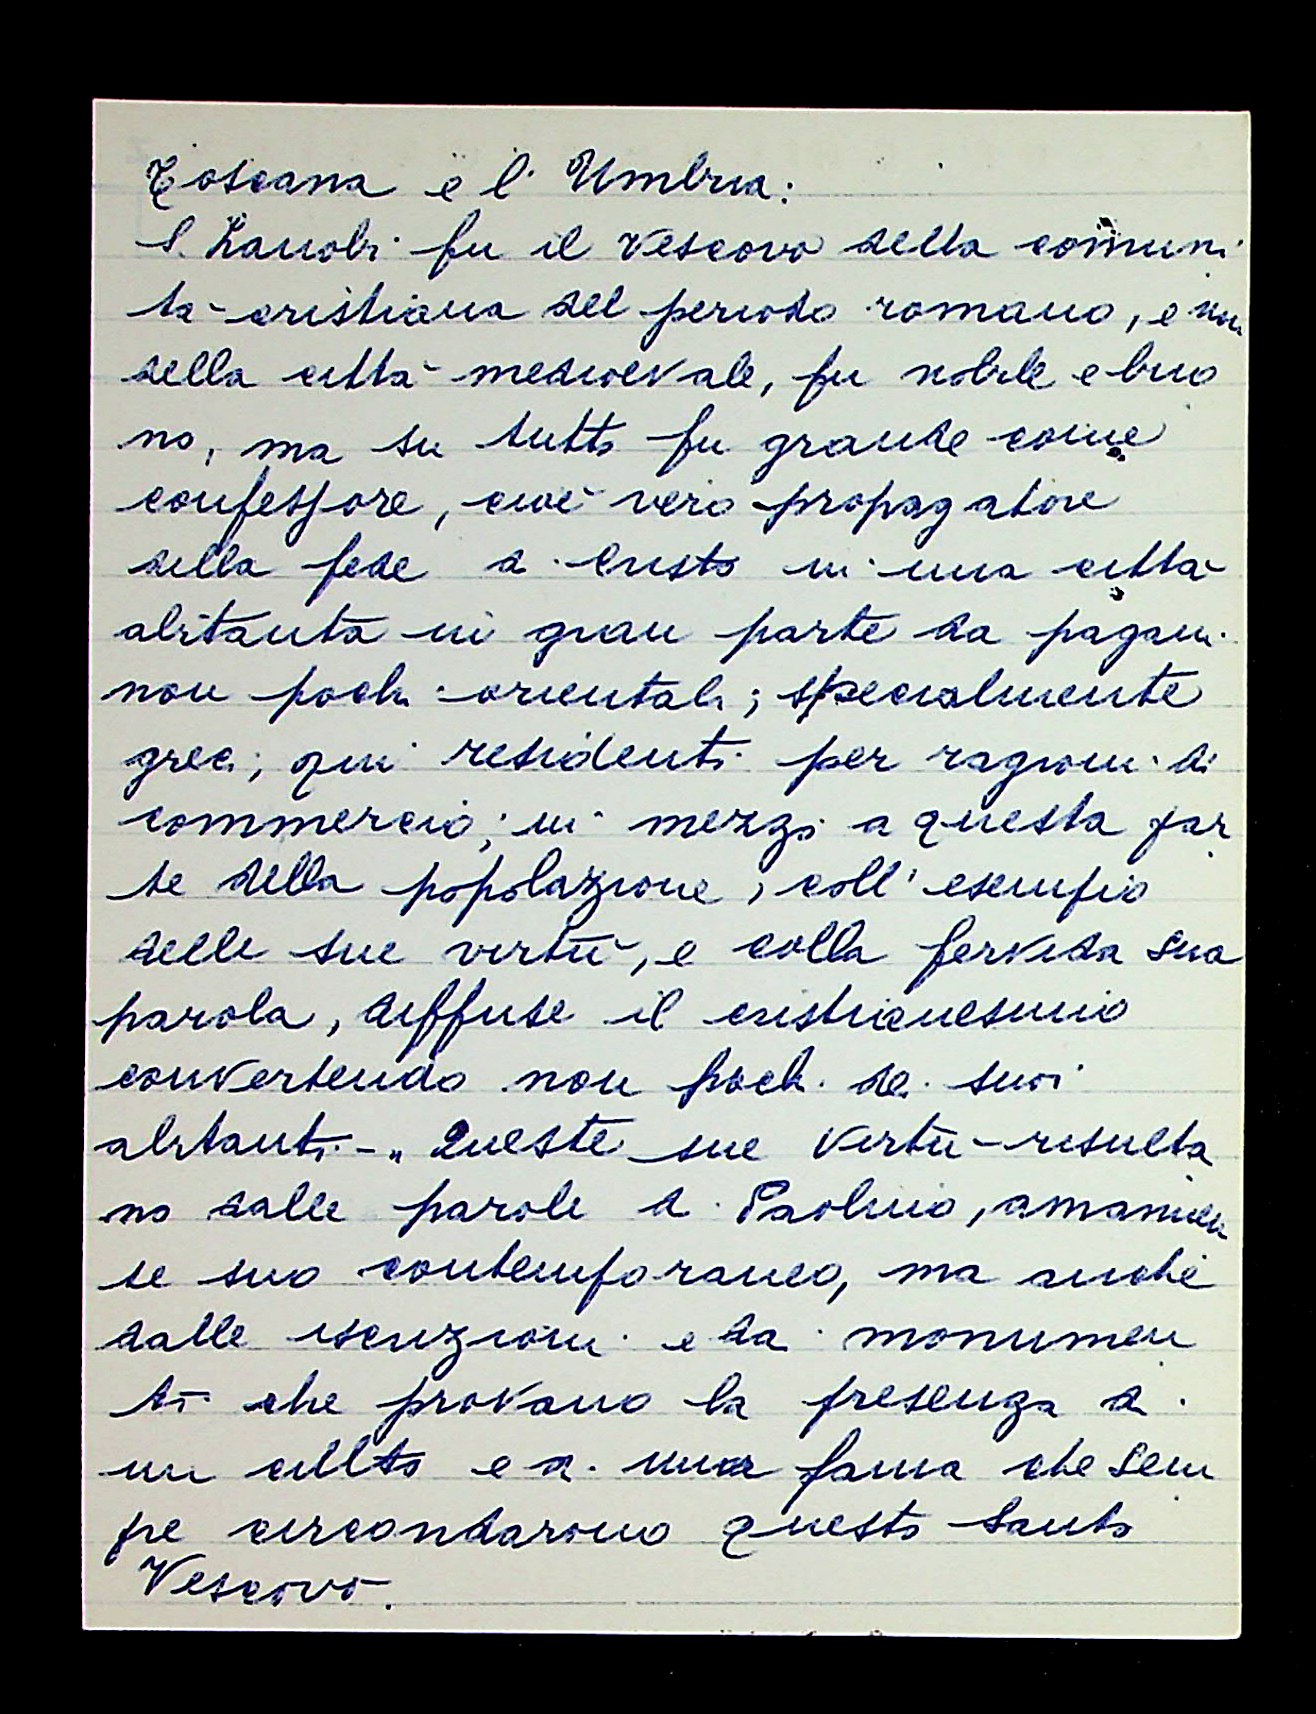 Toscana e l'Umbria.
S. Zanobi fu il Vescovo della comuni
tà cristiana del periodo romano, e non
della città medioevale, fu nobile e buo
no, ma su tutto fu grande come
confessore, cioè vero propagatore
della fede di Cristo in una città
abitata in gran parte da pagani
non pochi orientali; specialmente
greci, qui residenti per ragioni di
commercio; in mezzo a questa par
te della popolazione, coll'esempio
delle sue virtù, e colla fervida sua
parola, diffuse il cristianesimo
convertendo non pochi dei suoi
abitanti - „ Queste sue virtù risulta
no dalle parole di Paolino, amanuen
se suo contemporaneo, ma anche
dalle iscrizioni e da monumen
ti che provano la presenza di
un cullto e di una fama che sem
pre circondarono questo Santo
Vescovo.